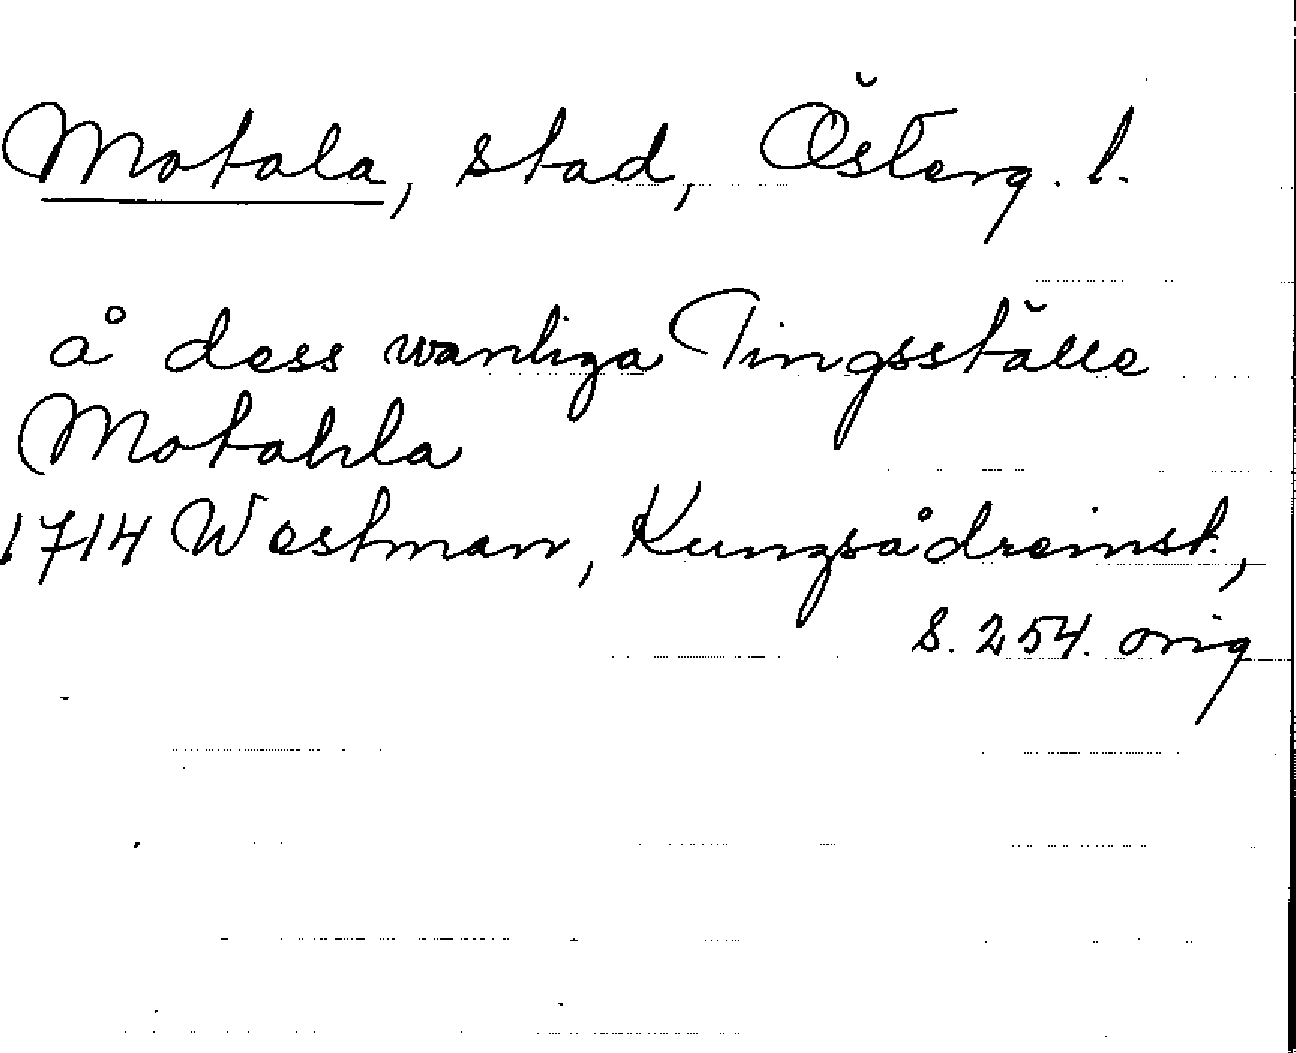 Motala, stad, Österg. l.
å dess wanliga Tingsställe
Motahla
1714 Westman, Kungsådreinst.,
s. 254. orig